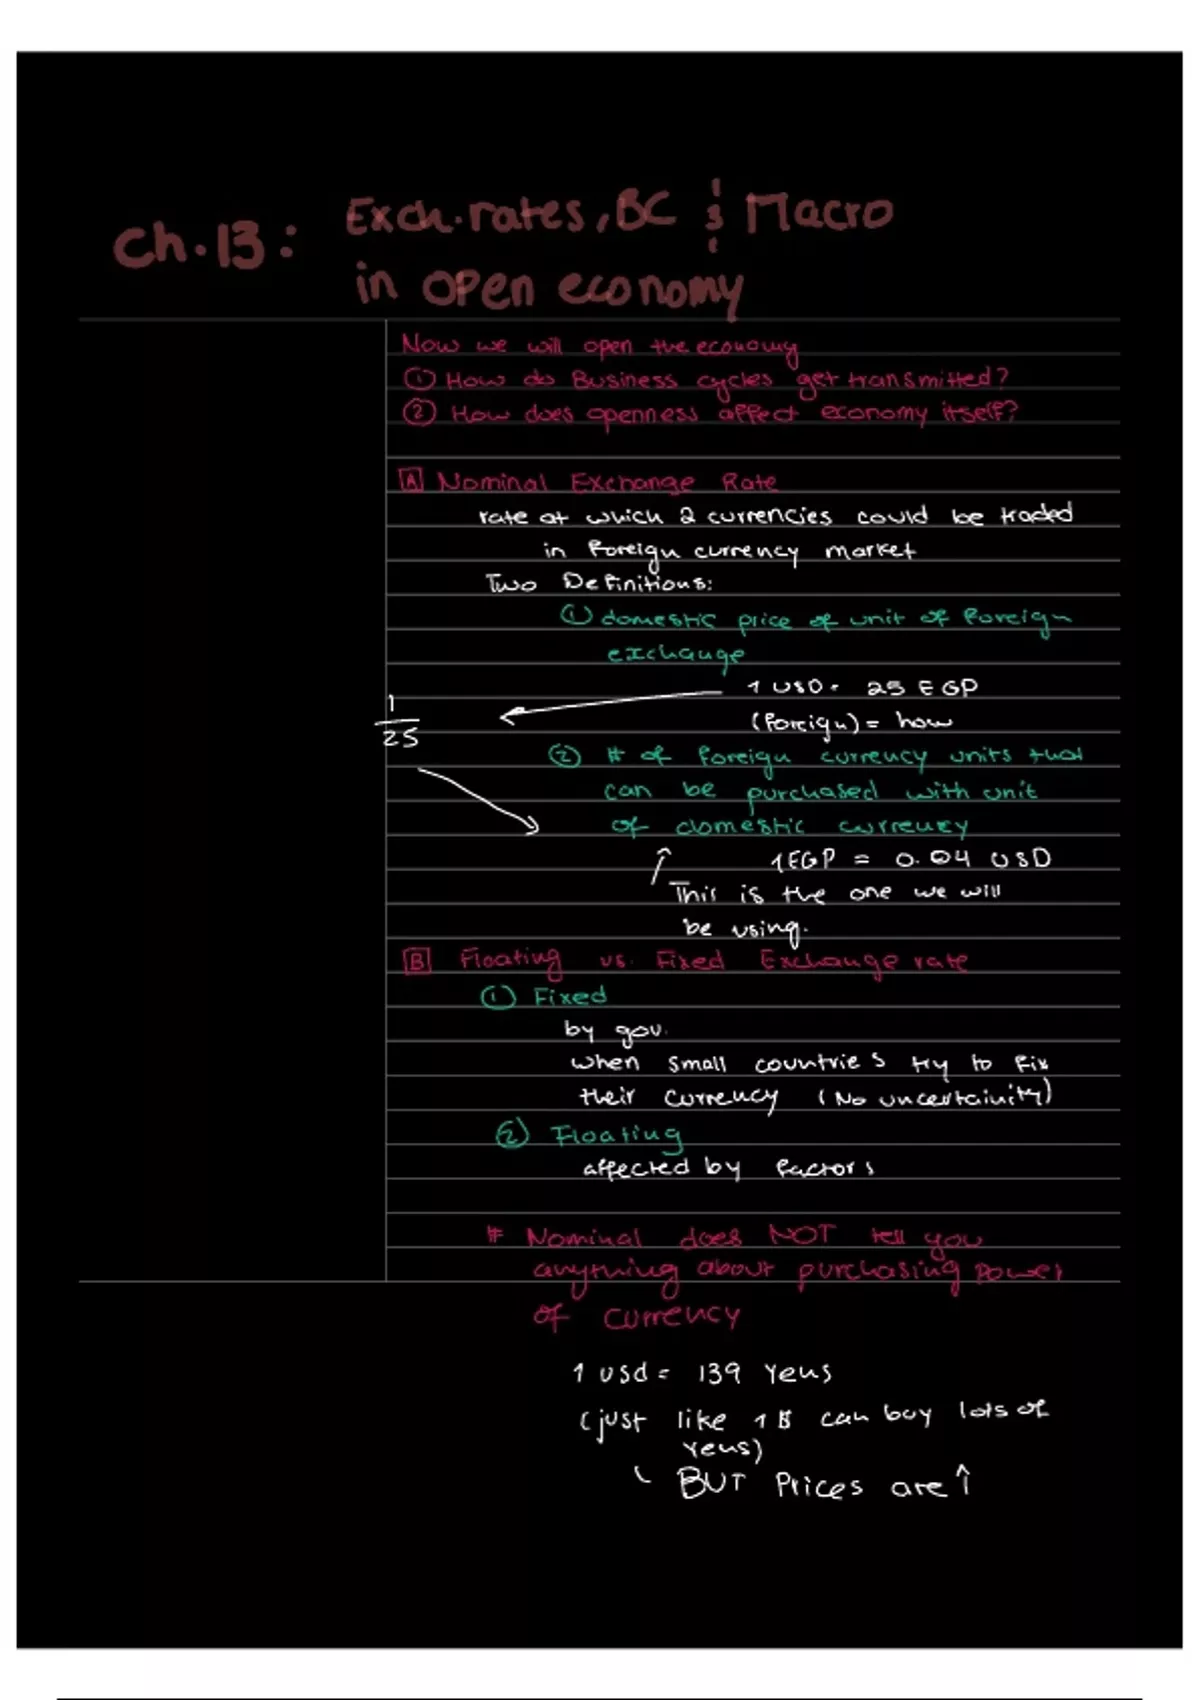 Ch.13: Exch.rates, BC & Macro
in open economy
Now we will open the economy
① How do Business cycles get transmitted?
② How does openness affect economy itself?
[A] Nominal Exchange Rate
rate at which 2 currencies could be traded
in foreign currency market
Two Definitions:
① domestic price of unit of foreign
exchange
1 USD = 25 EGP
(foreign) = how
1/25
② # of foreign currency units that
can be purchased with unit
of domestic currency
1 EGP = 0.04 USD
This is the one we will
be using.
[B] Floating vs. Fixed Exchange rate
① Fixed
by gov.
when small countries try to fix
their currency (No uncertainity)
② Floating
affected by factors
# Nominal does NOT tell you
anything about purchasing power
of currency
1 usd = 139 Yens
(just like 1$ can buy lots of
Yens)
BUT Prices are ↑